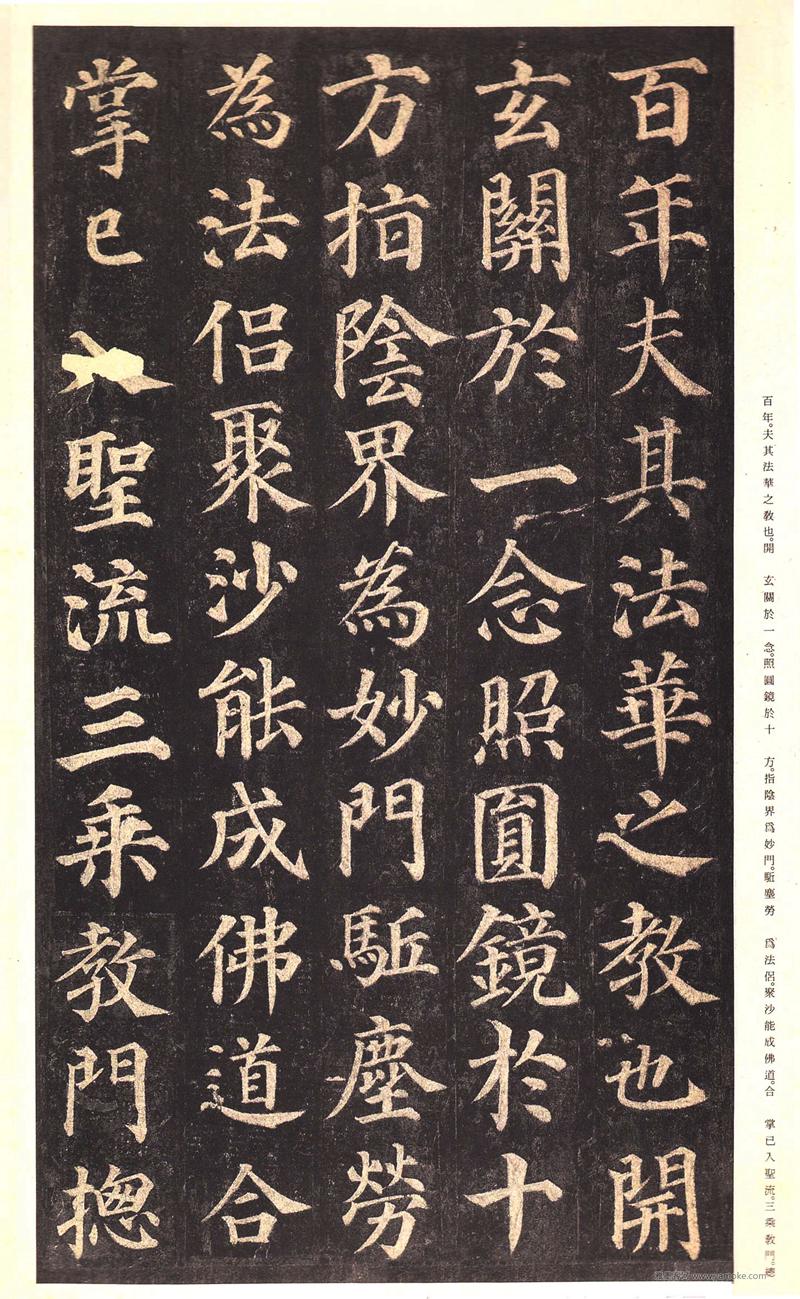 百年夫其法華之教也開
玄關於一念照圓鏡於十
方指陰界為妙門駈塵勞
為法侶聚沙能成佛道合
掌已入聖流三乘教門摠
百年。夫其法華之教也。開 玄關於一念。照圓鏡於十 方。指陰界爲妙門。駈塵勞 爲法侶。聚沙能成佛道。合 掌已入聖流。三乘教門。摠
www.yamoke.com